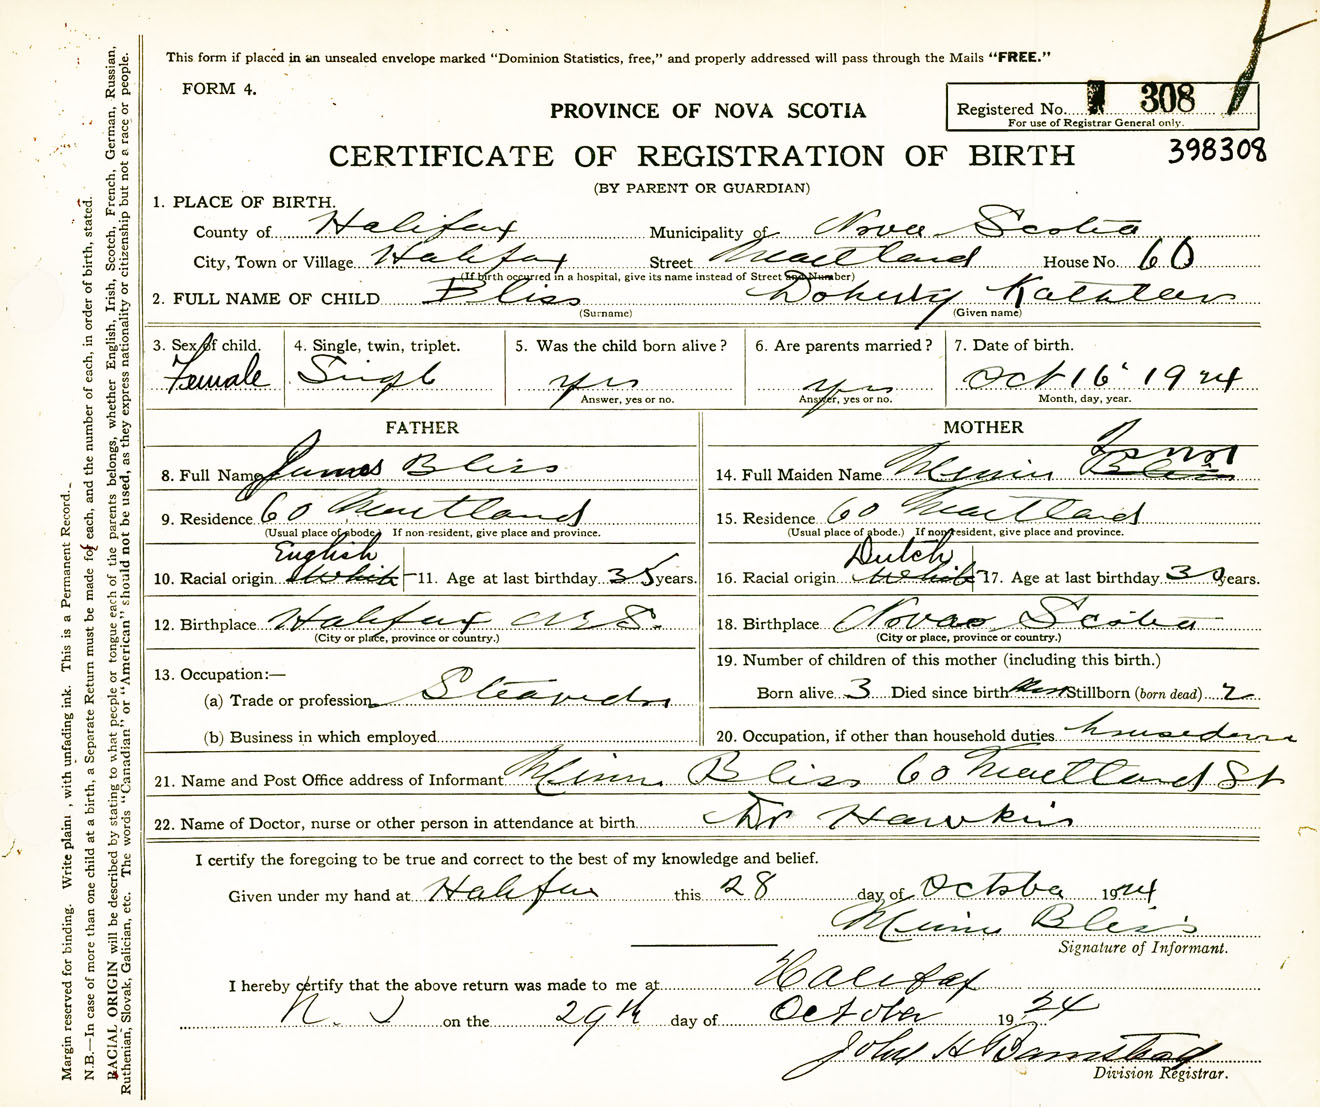 This form if placed in an unsealed envelope marked "Dominion Statistics, free," and properly addressed will pass through the Mails "FREE."
FORM 4.
Registered No. 308
For use of Registrar General only.
PROVINCE OF NOVA SCOTIA
398308
CERTIFICATE OF REGISTRATION OF BIRTH
(BY PARENT OR GUARDIAN)
1. PLACE OF BIRTH.
County of Halifax Municipality of Nova Scotia
City, Town or Village Halifax Street Maitland House No. 60
(If birth occurred in a hospital, give its name instead of Street and Number)
2. FULL NAME OF CHILD Bliss Doherty Kathleen
(Surname) (Given name)
3. Sex of child. 4. Single, twin, triplet. 5. Was the child born alive? 6. Are parents married? 7. Date of birth.
Female Single yes yes Oct 16 1924
Answer, yes or no. Answer, yes or no. Month, day, year.
FATHER
8. Full Name James Bliss
9. Residence 60 Maitland
(Usual place of abode.) If non-resident, give place and province.
English
10. Racial origin White 11. Age at last birthday 35 years.
12. Birthplace Halifax N.S.
(City or place, province or country.)
13. Occupation:—
(a) Trade or profession
(b) Business in which employed
MOTHER
14. Full Maiden Name Bliss
15. Residence 60 Maitland
(Usual place of abode.) If non-resident, give place and province.
Dutch
16. Racial origin White 17. Age at last birthday 30 years.
18. Birthplace Nova Scotia
(City or place, province or country.)
19. Number of children of this mother (including this birth.)
Born alive 3 Died since birth Stillborn (born dead) 2
20. Occupation, if other than household duties
21. Name and Post Office address of Informant Bliss 60 Maitland St
22. Name of Doctor, nurse or other person in attendance at birth Dr Hawkins
I certify the foregoing to be true and correct to the best of my knowledge and belief.
Given under my hand at Halifax this 28 day of October 1924
Bliss
Signature of Informant.
I hereby certify that the above return was made to me at Halifax
N. S on the 29th day of October 1924
John H Barnstead
Division Registrar.
Margin reserved for binding. Write plainly, with unfading ink. This is a Permanent Record.
N.B.—In case of more than one child at a birth, a Separate Return must be made for each, and the number of each, in order of birth, stated.
RACIAL ORIGIN will be described by stating to what people or tongue each of the parents belongs, whether English, Irish, Scotch, French, German, Russian,
Ruthenian, Slovak, Galician, etc. The words "Canadian" or "American" should not be used, as they express nationality or citizenship but not a race or people.